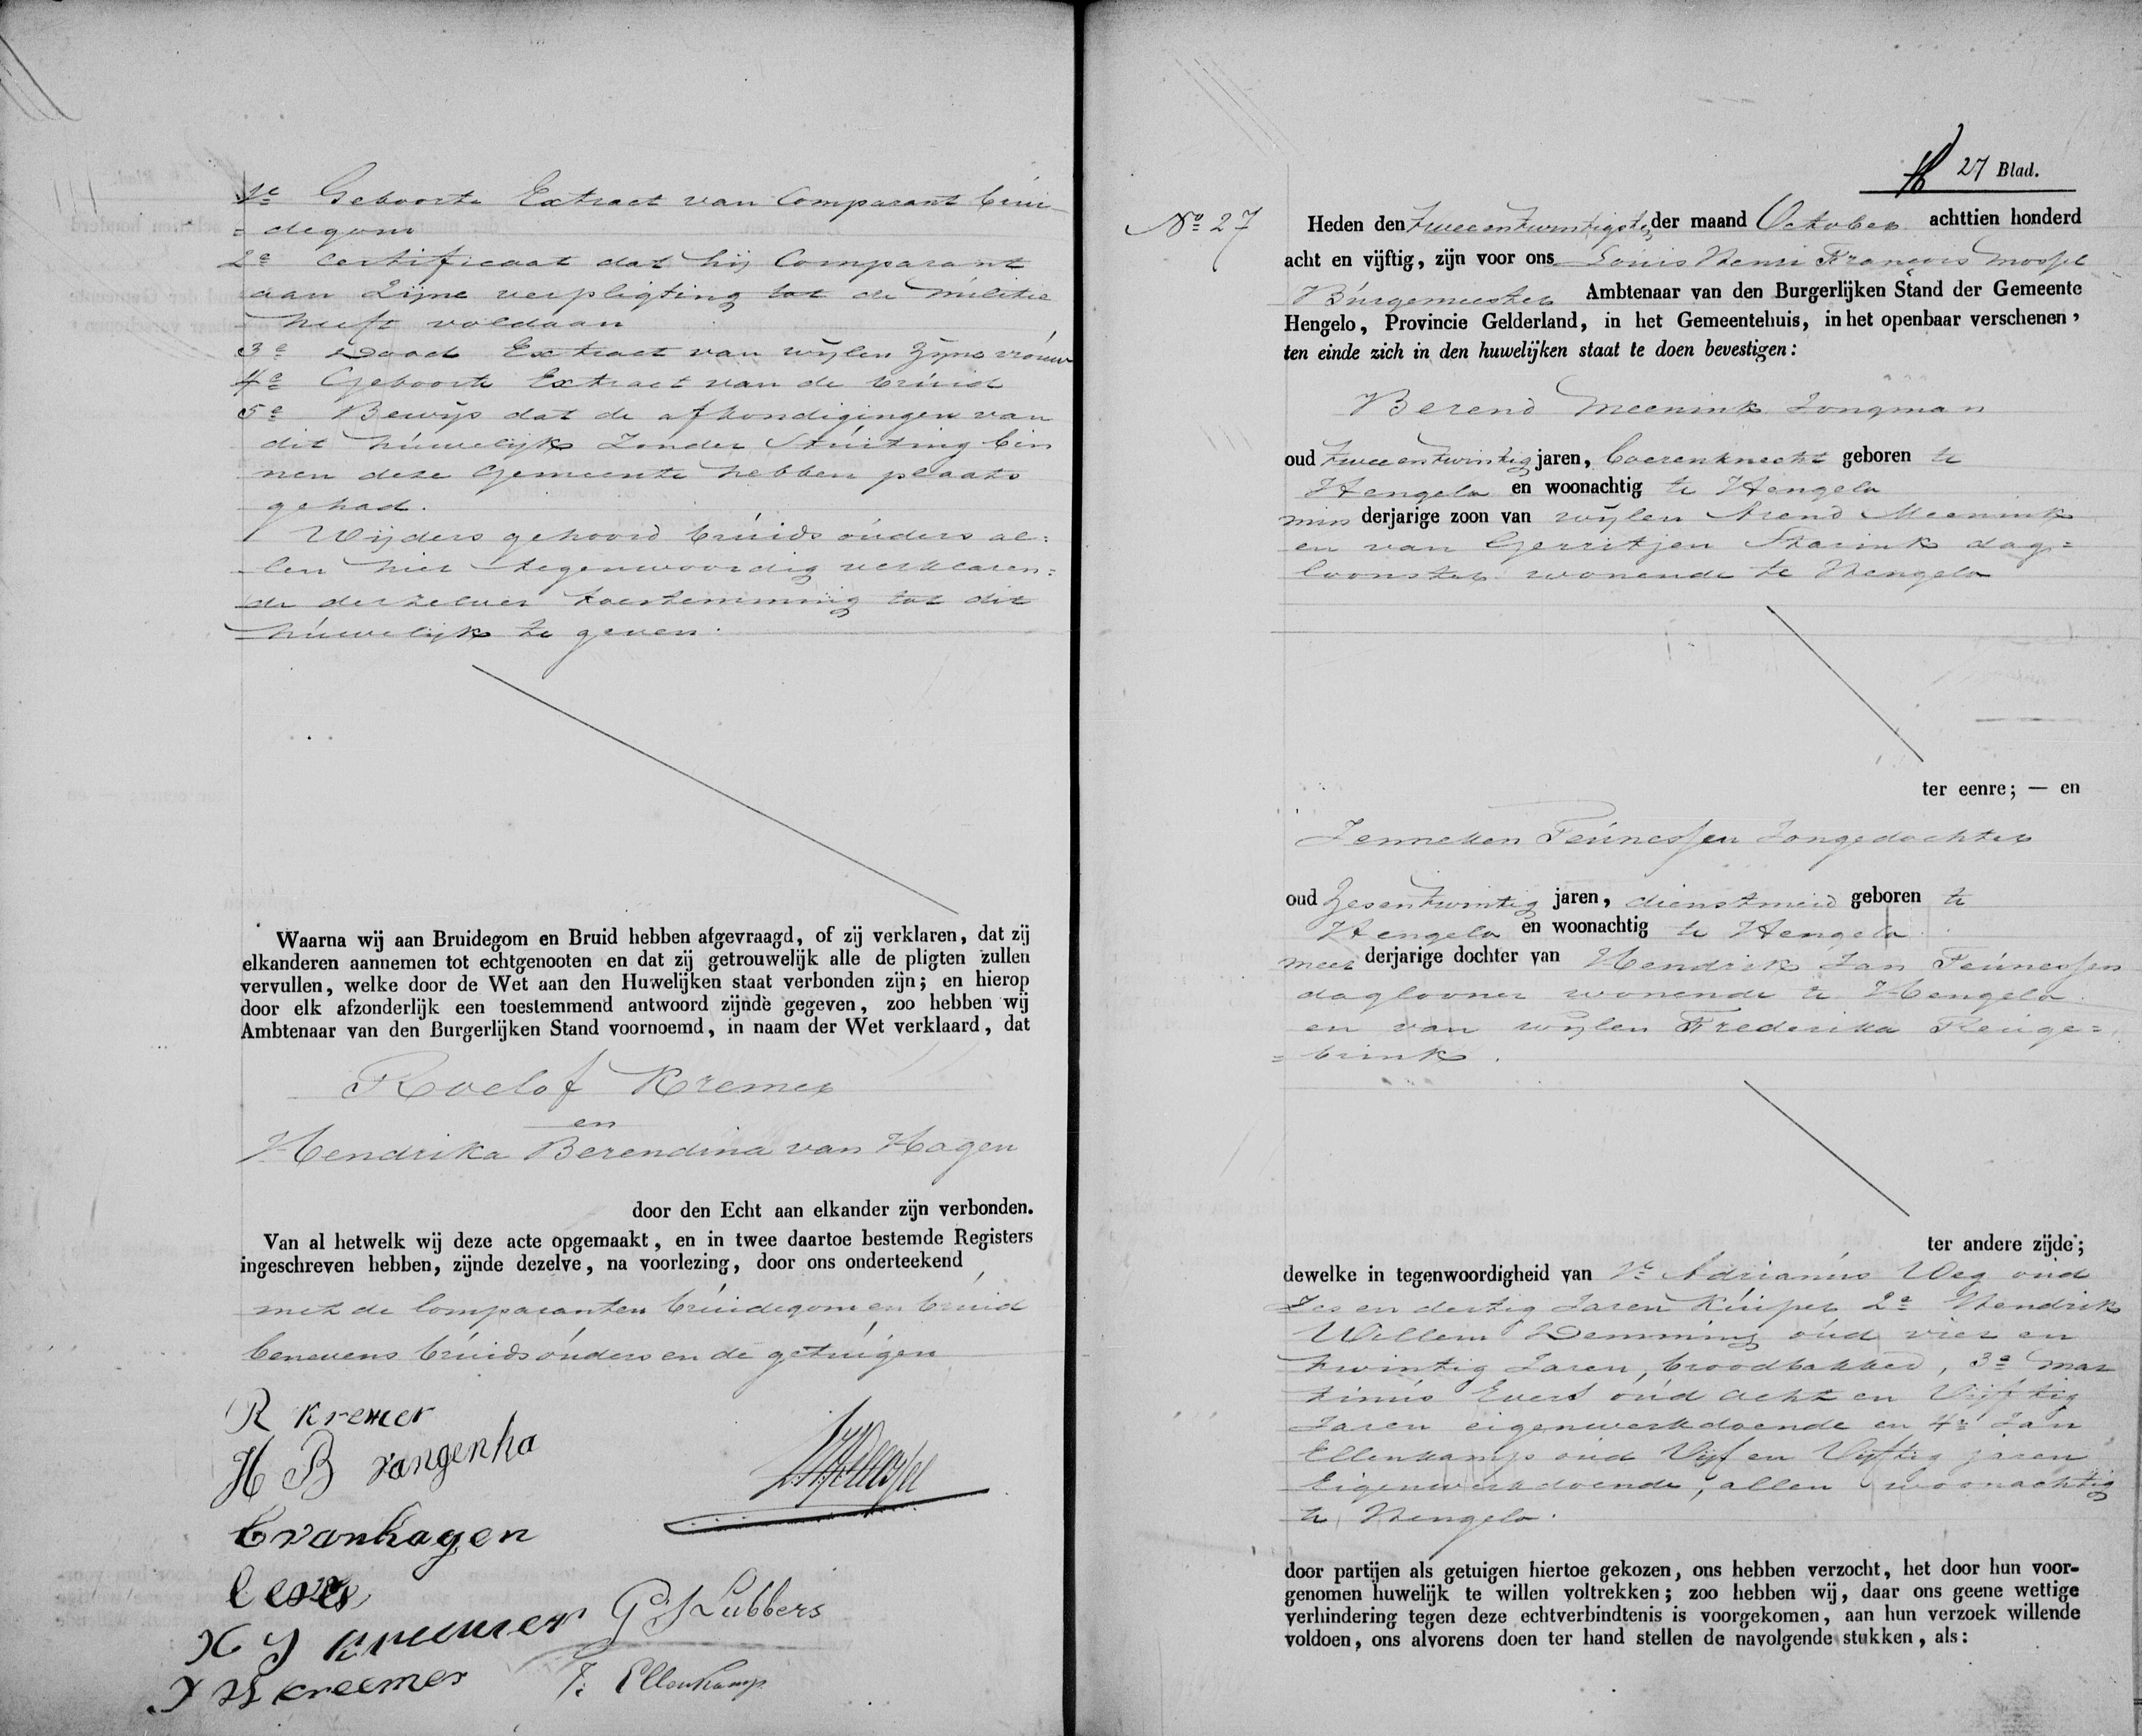 1e Geboorte Extract van Comparant brui
= degom
2e Certificaat dat hij Comparant
aan zijne verpligting tot de militie
heeft voldaan
3e Dood Extract van wijlen zijne vrouw
4e Geboorte Extract van de bruid
5e Bewijs dat de afkondigingen van
dit huwelijk zonder Stuiting bin
nen deze Gemeente hebben plaats
gehad.
Wijders gehoord bruids ouders al=
len hier tegenwoordig verklaren=
de derzelver toestemming tot dit
huwelijk te geven.
Waarna wij aan Bruidegom en Bruid hebben afgevraagd, of zij verklaren, dat zij
elkanderen aannemen tot echtgenooten en dat zij getrouwelijk alle de pligten zullen
vervullen, welke door de Wet aan den Huwelijken staat verbonden zijn; en hierop
door elk afzonderlijk een toestemmend antwoord zijnde gegeven, zoo hebben wij
Ambtenaar van den Burgerlijken Stand voornoemd, in naam der Wet verklaard, dat
Roelof Kremer
en
Hendrika Berendina van Hagen
door den Echt aan elkander zijn verbonden.
Van al hetwelk wij deze acte opgemaakt, en in twee daartoe bestemde Registers
ingeschreven hebben, zijnde dezelve, na voorlezing, door ons onderteekend
met de Comparanten bruidegom en bruid
benevens bruids ouders en de getuigen
R Kremer
H B vangenha
G vanhagen
H J Kreemer G J Lubbers
J W Kreemer J. Ellenkamp
27 Blad.
No 27
Heden den tweeentwintigste der maand October achttien honderd
acht en vijftig, zijn voor ons Louis Henri François Mossel
Burgemeester Ambtenaar van den Burgerlijken Stand der Gemeente
Hengelo, Provincie Gelderland, in het Gemeentehuis, in het openbaar verschenen,
ten einde zich in den huwelijken staat te doen bevestigen:
Berend Meenink Jongman
oud tweeentwintig jaren, boerenknecht geboren te
Hengelo en woonachtig te Hengelo
min derjarige zoon van wijlen Arend Meenink
en van Gerritjen Starink dag=
loonster wonende te Hengelo
ter eenre; — en
Jenneken Teunessen Jongedochter
oud Zesentwintig jaren, dienstmeid geboren te
Hengelo en woonachtig te Hengelo.
meer derjarige dochter van Hendrik Jan Teunessen
daglooner wonende te Hengelo.
en van wijlen Frederika Reuge=
= brink.
ter andere zijde;
dewelke in tegenwoordigheid van 1e Adrianus Weg oud
Zes en dertig Jaren Kuiper 2e Hendrik
Willem Demming oud vier en
twintig Jaren, broodbakker, 3e Mar
tinus Evers oud acht en Vijftig
Jaren eigenwerkdoende en 4e Jan
Ellenkamp oud Vijf en Vijftig jaren
Eigenwerkdoende, allen woonachtig
te Hengelo.
door partijen als getuigen hiertoe gekozen, ons hebben verzocht, het door hun voor-
genomen huwelijk te willen voltrekken; zoo hebben wij, daar ons geene wettige
verhindering tegen deze echtverbindtenis is voorgekomen, aan hun verzoek willende
voldoen, ons alvorens doen ter hand stellen de navolgende stukken, als: